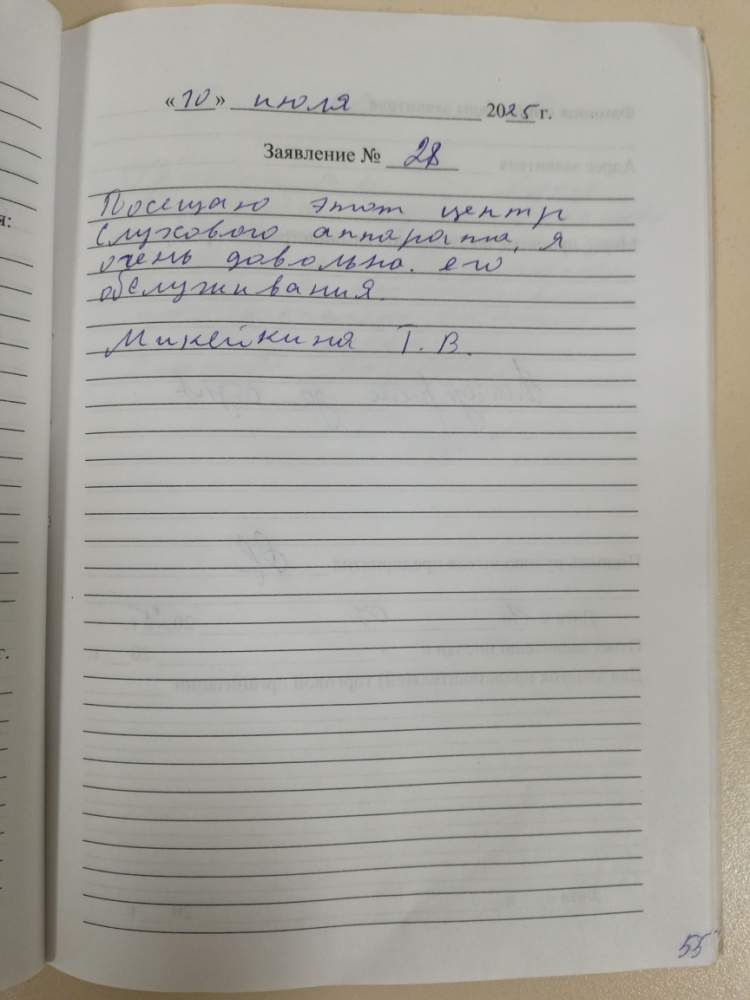 «10» июля 2025 г.
Заявление № 28
Посещаю этот центр
слухового аппарата, я
очень довольна. его
обслуживания.
Микейкина Т. В.
55